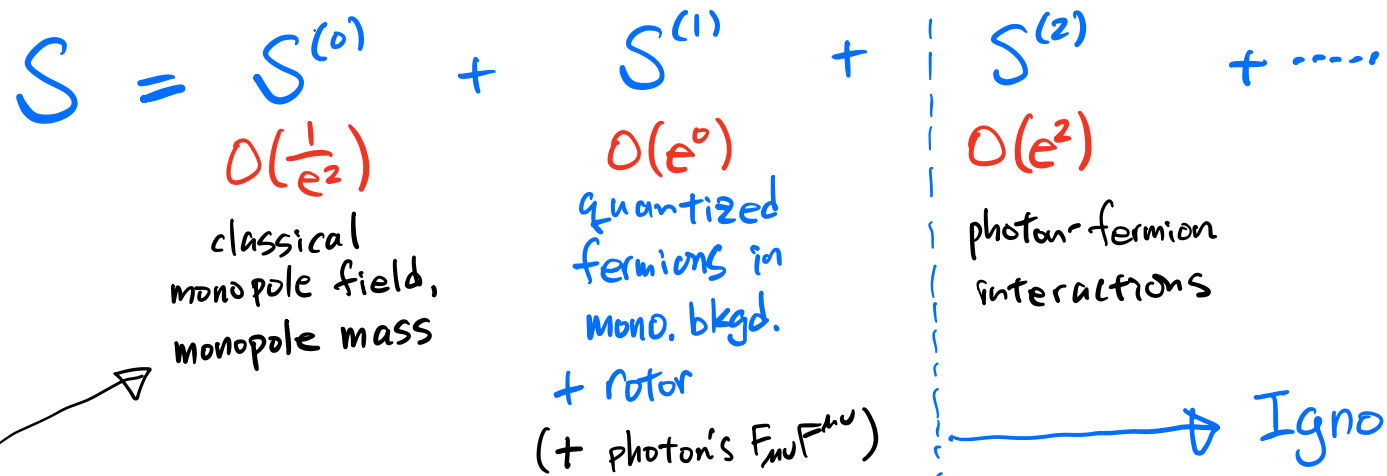 S = S^(0) + S^(1) + S^(2) + .....
O(1/e²) O(e⁰) O(e²)
classical
monopole field,
monopole mass
quantized
fermions in
mono. bkgd.
+ rotor
(+ photon's F_{μν}F^{μν})
photon-fermion
interactions
Igno